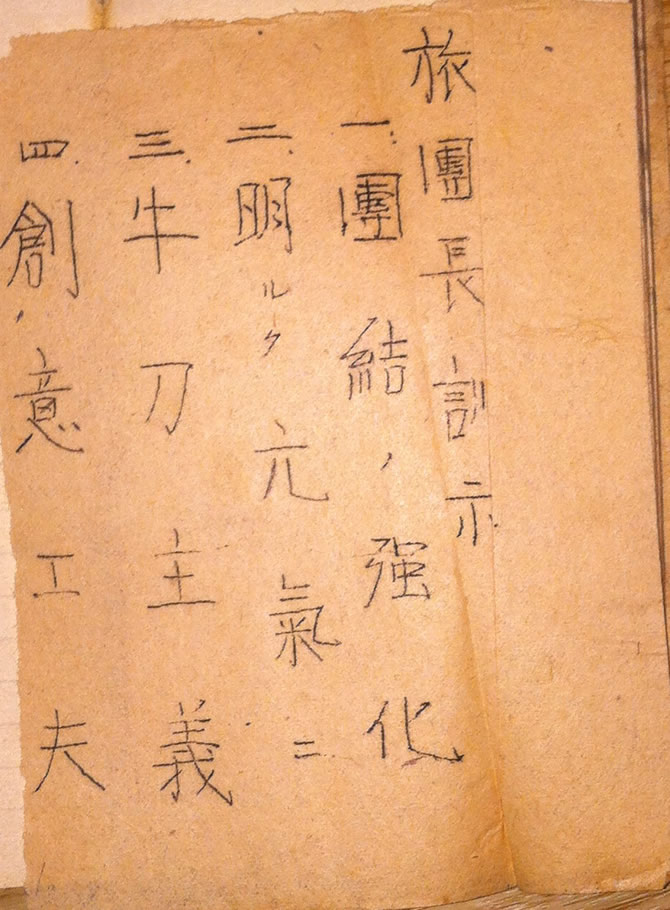 旅團長訓示
一、團結ノ強化
二、明ルク元氣ニ
三、牛刀主義
四、創意工夫